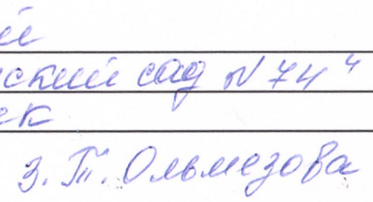 й
ский сад №74"
ек
З. Т. Ольмезова